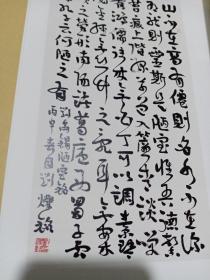 山不在高有僊則名水不在深
有龍則靈斯是陋室惟吾德馨
苔痕上階綠草色入簾青談笑
有鴻儒往來無白丁可以調素琴
閱金經無絲竹之亂耳無案牘
之勞形南陽諸葛廬西蜀子雲
亭孔子云何陋之有
劉禹錫陋室銘
丙申春月劉燦銘